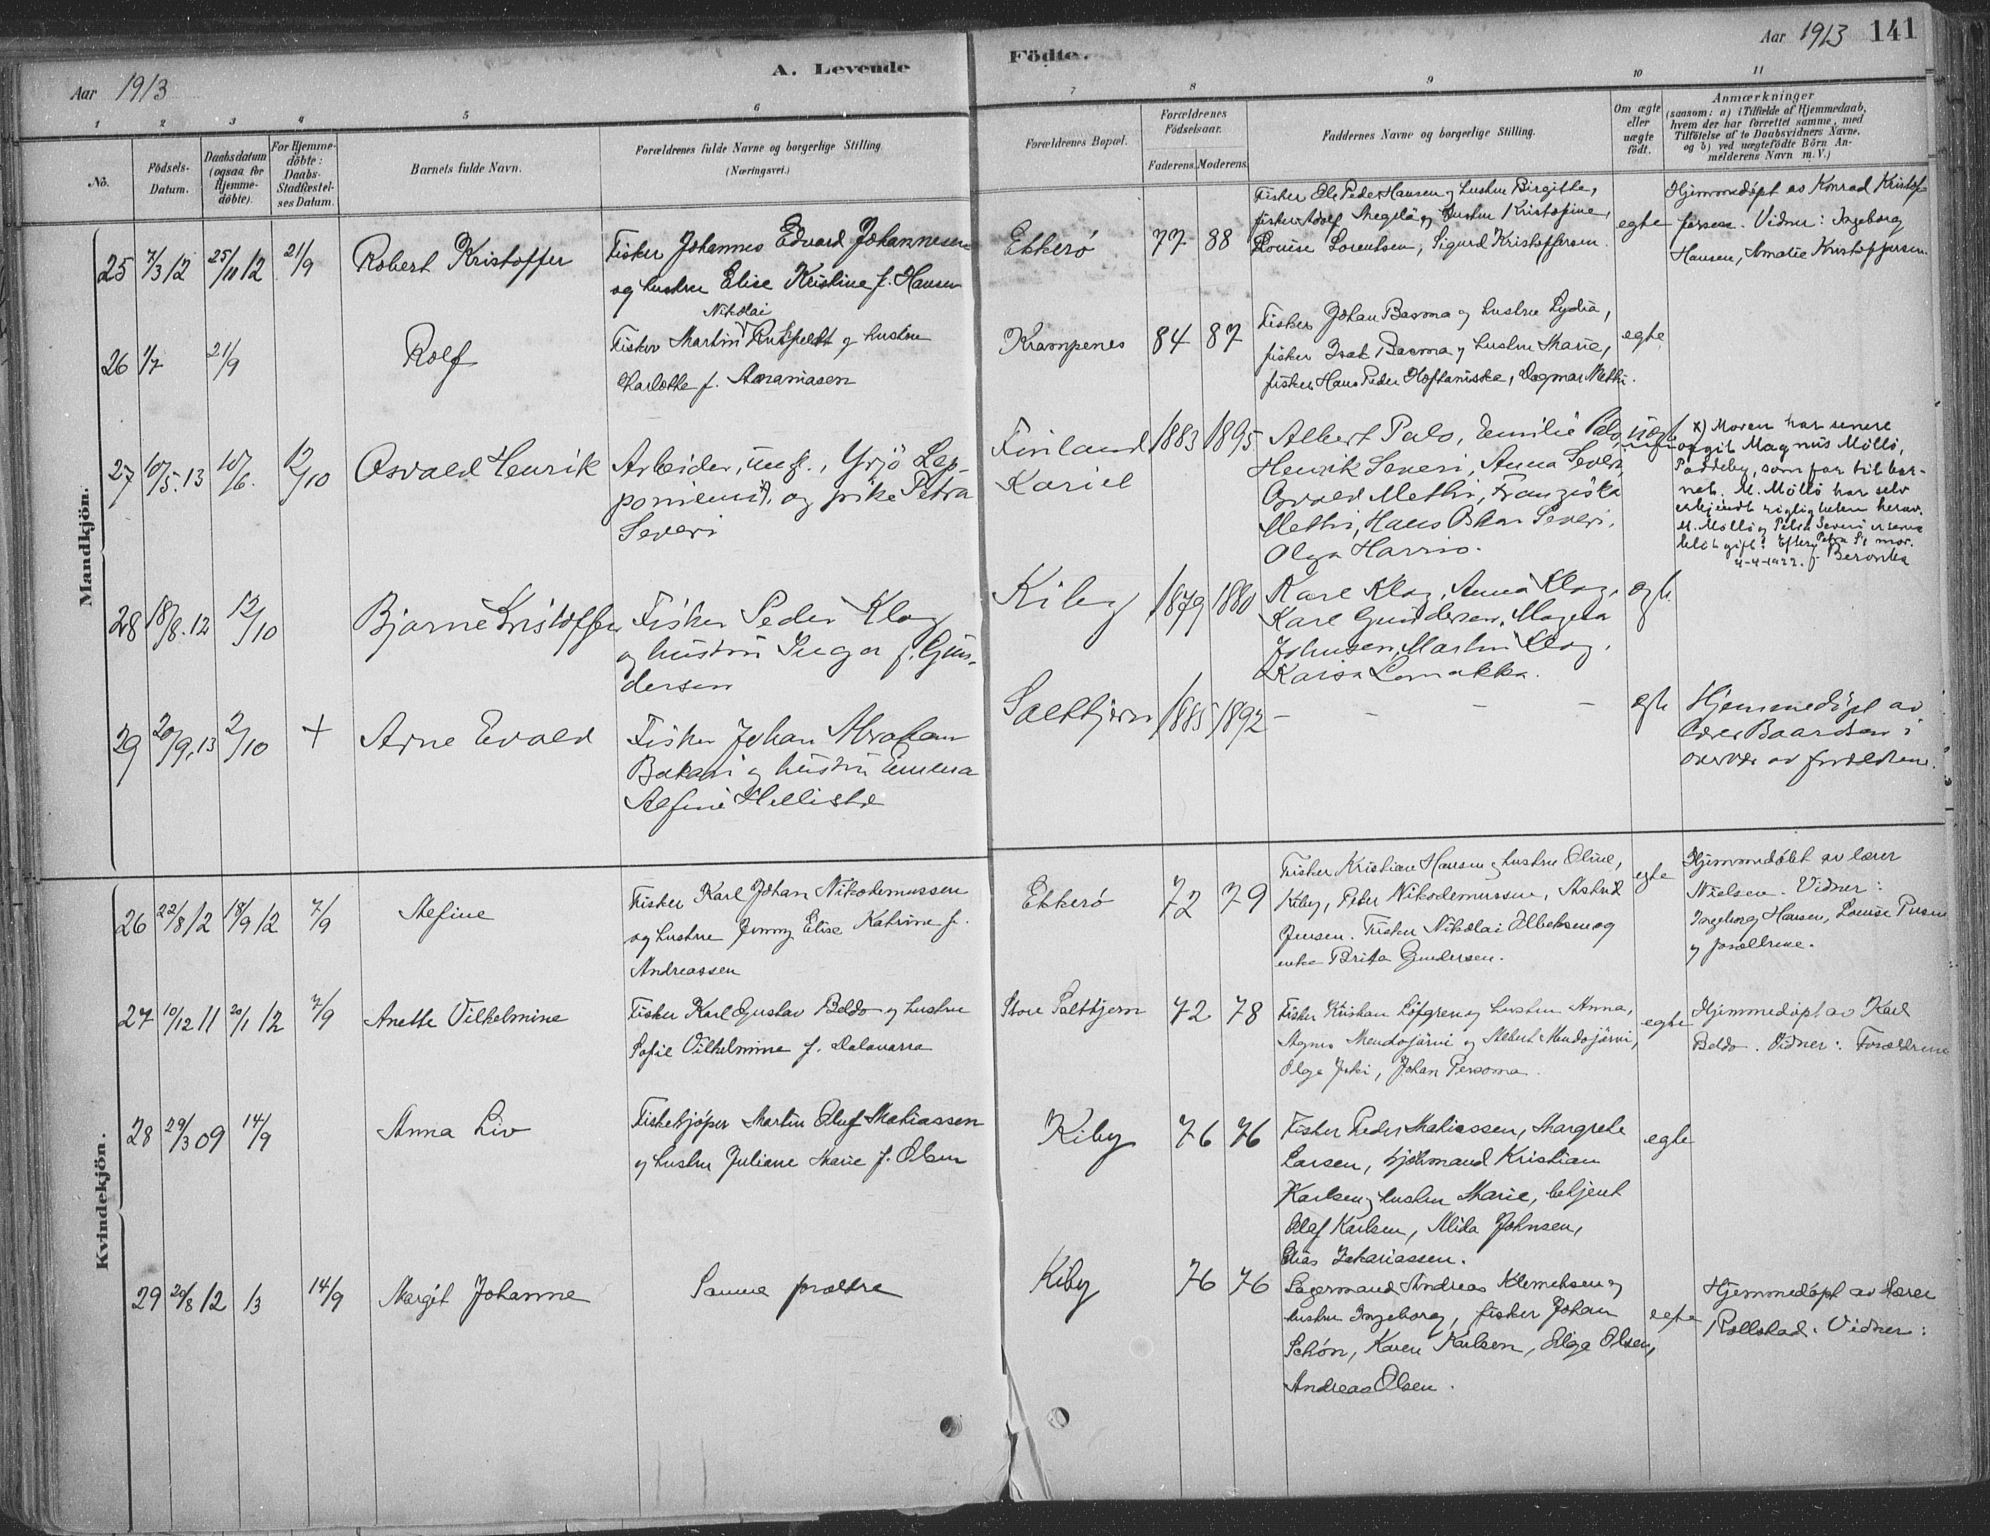 Aar 1913
A. Levende
Födte.
Aar 1913 141
1 2 3 4 5 6 7 8 9 10 11
No.
Födsels-
Datum.
Daabsdatum
(ogsaa for
Hjemme-
döbte).
For Hjemme-
döbte:
Daabs-
Stadfæstel-
ses Datum.
Barnets fulde Navn.
Forældrenes fulde Navne og borgerlige Stilling.
(Næringsvei.)
Forældrenes Bopæl.
Forældrenes
Födselsaar.
Faderens. Moderens.
Faddernes Navne og borgerlige Stilling.
Om ægte
eller
uægte
födt.
Anmærkninger
(saasom: a) i Tilfælde af Hjemmedaab,
hvem der har forrettet samme, med
Tilföielse af to Daabsvidners Navne,
og b) ved uægtefödte Börn An-
melderens Navn m. V.)
Mandkjön.
25 7/3 12 25/10 12 21/9 Robert Kristoffer
Fisker Johannes Edvard Johannesen
og hustru Elise Kristine f. Hansen
Ekkerö 77 88
Fisker Ole Peder Hansen og hustru Birgithe,
fisker Adolf og hustru Kristofine,
Louise Lorentsen, Sigurd Kristoffersen.
egte
Hjemmedöpt av Konrad Kristof-
fersen. Vidner: Ingeborg
Hansen, Amalie Kristoffersen.
26 1/7 21/9 Rolf
Nikolai
Fisker Martin og hustru
Charlotte f. Ananiasen
Krampenes 84 87
Fisker Johan Basma og hustru Lydia,
fisker Isak Basma og hustru Marie,
fisker Hans Peder, Dagmar Methi.
egte
27 10/5.13 10/6. 12/10 Osvald Henrik
Arbeider, ung., Yrjö Lep-
poniemi x), og pike Petra
Severi
Finland
Kariel
1883 1895
Albert Palo, Emilie Palo,
Henrik Severi, Anna Severi
Osvald Methi, Franziska
Methi, Hans Oskar Severi,
Olga Harrio.
uegte
x) Moren har senere
opgit Magnus Möllö,
Paddeby, som far til bar-
net. M. Möllö har selv
erkjendt rigtigheten herav.
M. Möllö og Petra Severi er senere
blit gift. Efter Petra S's mor.
4-4-1922.
28 18/8.12 12/10 Bjarne Kristoffer
Fisker Peder Klog
og hustru Inga f. Gun-
dersen
Kiby 1879 1880
Karl Klog, Anna Klog,
Karl Gundersen, Magna
Johnsen, Martin Klog,
Kaisa Lomakka.
egte
29 20/9.13 2/10 + Arne Evald
Fisker Johan Abraham
Bakari og hustru Emma
Alfine
Saltkjern 1885 1892 - - - -
egte
Hjemmedöpt av
Baardsen i
overvær av forældrene.
Kvindekjön.
26 22/8 12 18/9 12 7/9 Stefine
Fisker Karl Johan Nikodemussen
og hustru Jenny Elise Katrine f.
Andreassen
Ekkerö 72 79
Fisker Kristian Hansen og hustru Oline,
Kiby, Peter Nikodemussen, Astrid
Jensen. Fisker Nikolai og
enke Brita Gundersen.
egte
Hjemmedöbt av lærer
Nielsen. Vidner:
Ingeborg Hansen, Louise
og forældrene.
27 10/12 11 20/1 12 7/9 Anette Vilhelmine
Fisker Karl Gustav Beldo og hustru
Sofie Vilhelmine f. Dalavarra
Store Saltkjern 72 78
Fisker Kristian Löfgren og hustru Anna,
Agnes Mendojärvi og Albert Mendojärvi,
Olga Juki, Johan
egte
Hjemmedöpt av Karl
Beldo. Vidner: Forældrene
28 29/3 09 14/9 Anna Liv
Fiskekjöper Martin Oluf Mathiassen
og hustru Juliane Marie f. Olsen
Kiby 76 76
Fisker Peder Mathiassen, Margrete
Larsen, sjömand Kristian
Karlsen og hustru Marie, betjent
Olaf Karlsen, Alida Johnsen,
Elias Zakariassen.
egte
29 20/8 12 13 14/9 Margit Johanne
Samme forældre
Kiby 76 76
Lagermand Andreas Klemetsen og
hustru Ingeborg, fisker Johan
Schön, Karen Karlsen, Helga Olsen,
Andreas Olsen.
egte
Hjemmedöpt av lærer
Rollstad. Vidner: